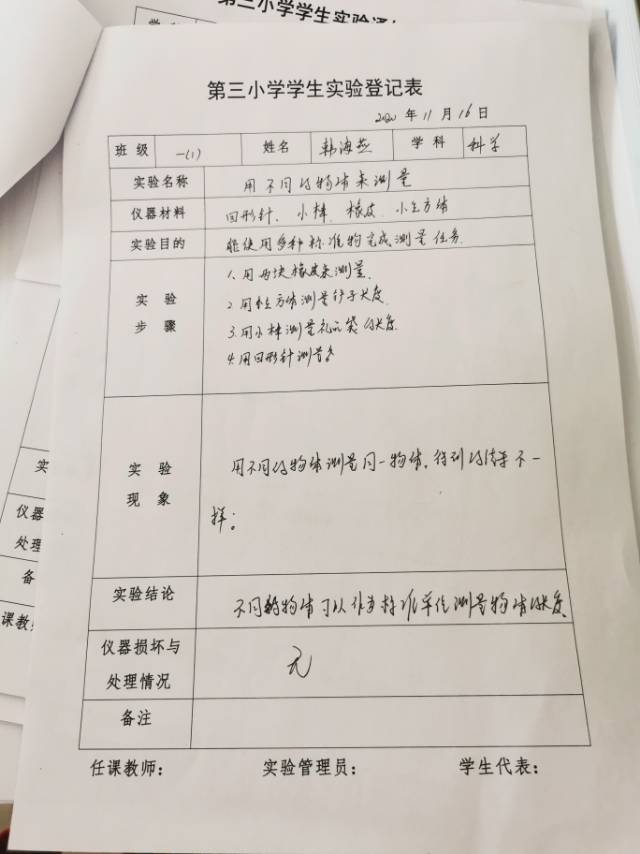 第三小学学生实验
第三小学学生实验登记表
2020 年 11 月 16 日
班 级 一(1) 姓名 韩海燕 学 科 科学
实验名称 用不同的物体来测量
仪器材料 回形针、小棒、橡皮、小立方体
实验目的 能使用多种标准物完成测量任务.
实 验
步 骤
1. 用两块橡皮来测量.
2. 用立方体测量 长度.
3. 用小棒测量礼品袋的长度.
4. 用回形针测量
实 验
现 象
用不同的物体测量同一物体,得到的结果不一
样;
实验结论 不同的物体可以作为标准单位测量物体的长度
仪器损坏与
处理情况
无
备注
任课教师: 实验管理员: 学生代表:
实
仪器
处理
备
课教